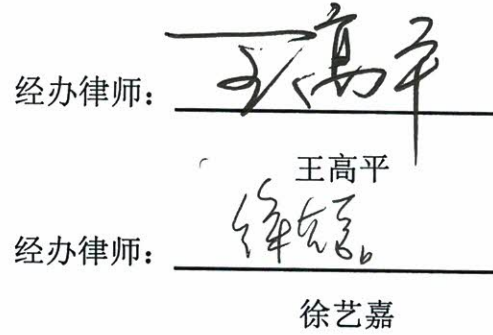 经办律师：王高平
王高平
经办律师：徐艺嘉
徐艺嘉